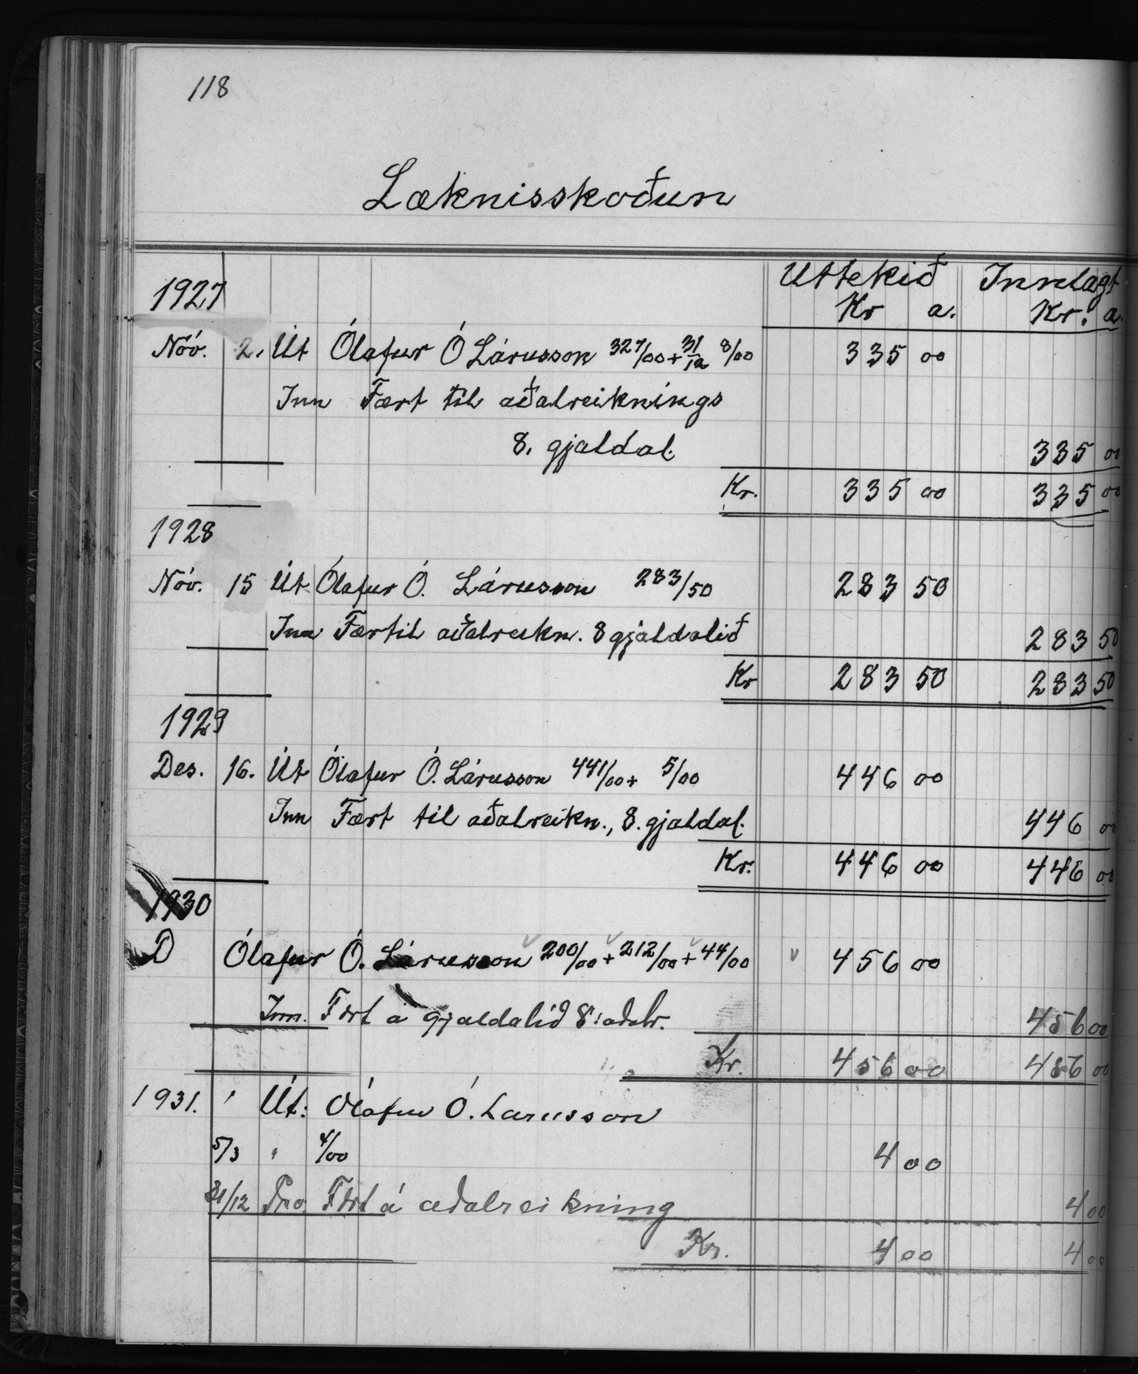 118
Læknisskoðun
1927 Úttekið Innlagt
Kr a. Kr. a.
Nóv. 2. Út Ólafur Ó Lárusson 327/00 + 31/12 8/00 335 00
Inn Fært til aðalreiknings
8. gjaldal. 335 00
Kr. 335 00 335 00
1928
Nóv. 15 Út Ólafur Ó. Lárusson 283/50 283 50
Inn Fært til aðalreikn. 8 gjaldalið 283 50
Kr 283 50 283 50
1929
Des. 16. Út Ólafur Ó. Lárusson 441/00 + 5/00 446 00
Inn Fært til aðalreikn., 8. gjaldal. 446 00
Kr. 446 00 446 00
1930
D Ólafur Ó. Lárusson 200/00 + 212/00 + 44/00 456 00
Inn. Fært á gjaldalið 8: aðalr. 456 00
Kr. 456 00 456 00
1931. ' Út: Ólafur Ó. Larusson
5/3 " 4/00 4 00
31/12 Fært á aðalreikning 4 00
Kr. 4 00 4 00